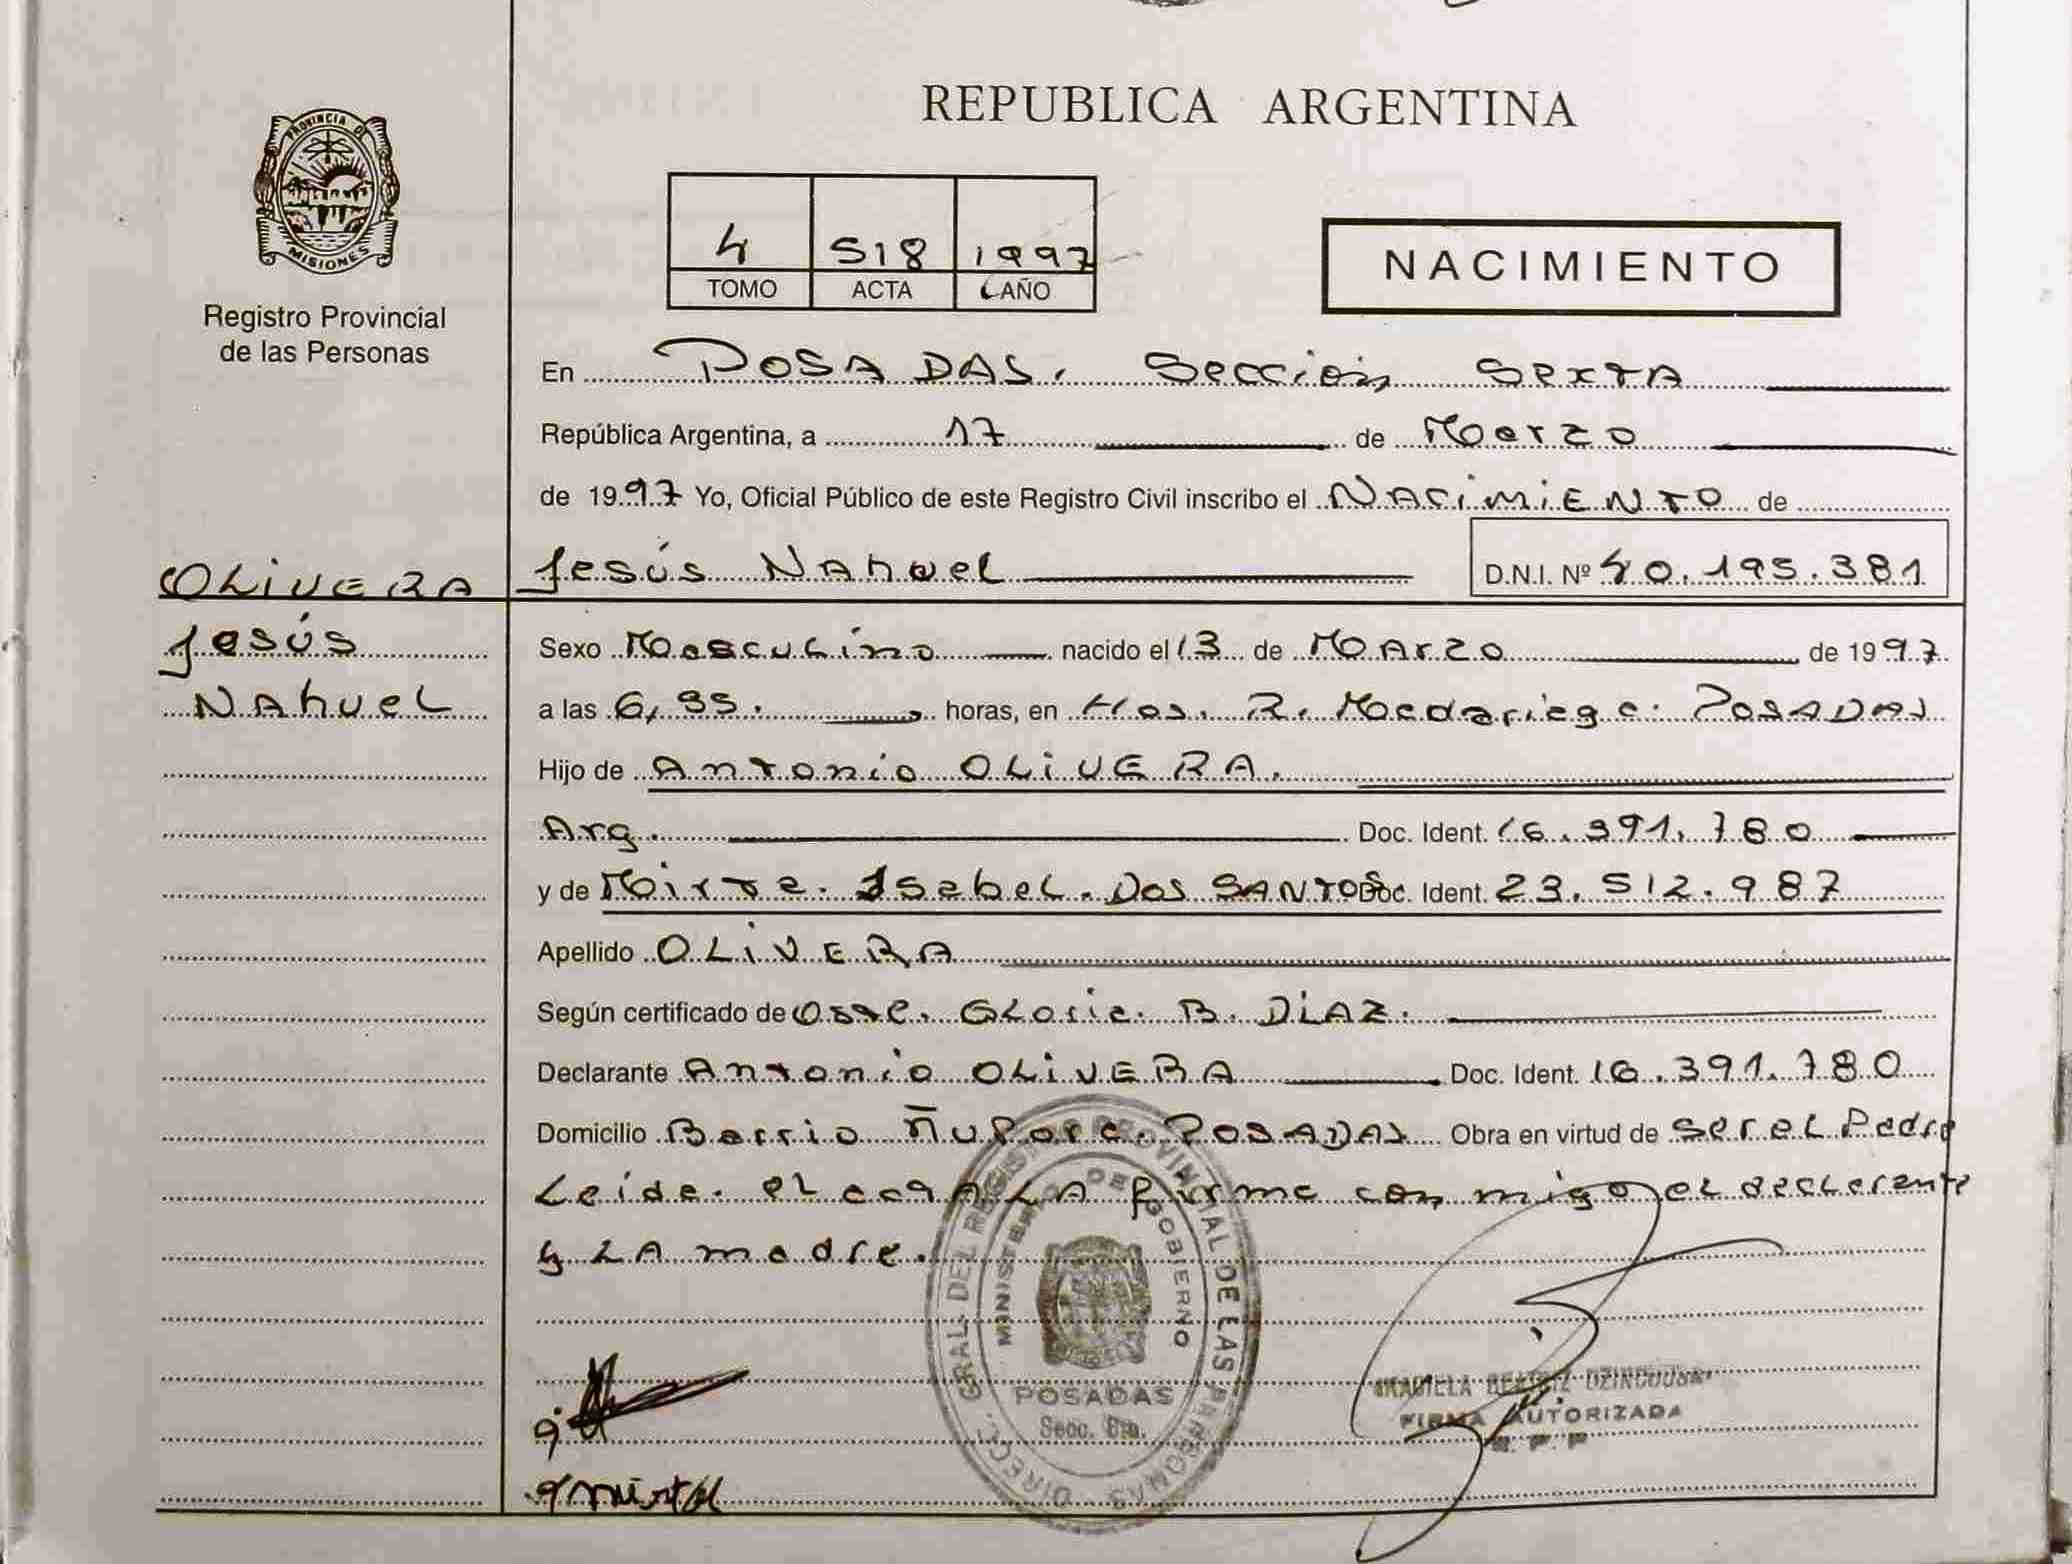 PROVINCIA DE
MISIONES
Registro Provincial
de las Personas
REPUBLICA ARGENTINA
4 518 1997
TOMO ACTA AÑO
NACIMIENTO
En POSADAS. Sección Sexta
República Argentina, a 17 de Marzo
de 1997 Yo, Oficial Público de este Registro Civil inscribo el NACIMIENTO de
OLIVERA Jesús Nahuel D.N.I. Nº 40.195.381
Jesús Sexo Masculino nacido el 13 de Marzo de 1997
Nahuel a las horas, en Hos. R. Madariaga. POSADAS
Hijo de Antonio OLIVERA.
Arg. Doc. Ident. 16.391.780
y de Mirta. Isabel. DOS SANTOS Doc. Ident. 23.512.987
Apellido OLIVERA
Según certificado de Obst. Gloria. B. DIAZ.
Declarante Antonio OLIVERA Doc. Ident. 16.391.780
Domicilio Barrio Ñu Porá. POSADAS Obra en virtud de ser el Padre
Leida. el acta LA firma con migo el declarante
y LA madre.
DIRECC. GRAL. DEL REGISTRO PROVINCIAL DE LAS PERSONAS
MINISTERIO DE GOBIERNO
POSADAS
Secc. 6ta.
GRACIELA BEATRIZ
FIRMA AUTORIZADA
R. P. P
mirta